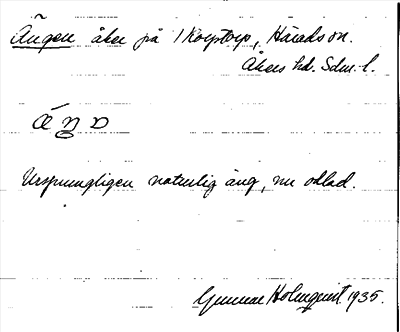 Ängen åker på 1 Korptorp, Härads sn.
Åkers hd. Sdm. l.
Ursprungligen naturlig äng, nu odlad.
Gunnar Holmquist 1935.